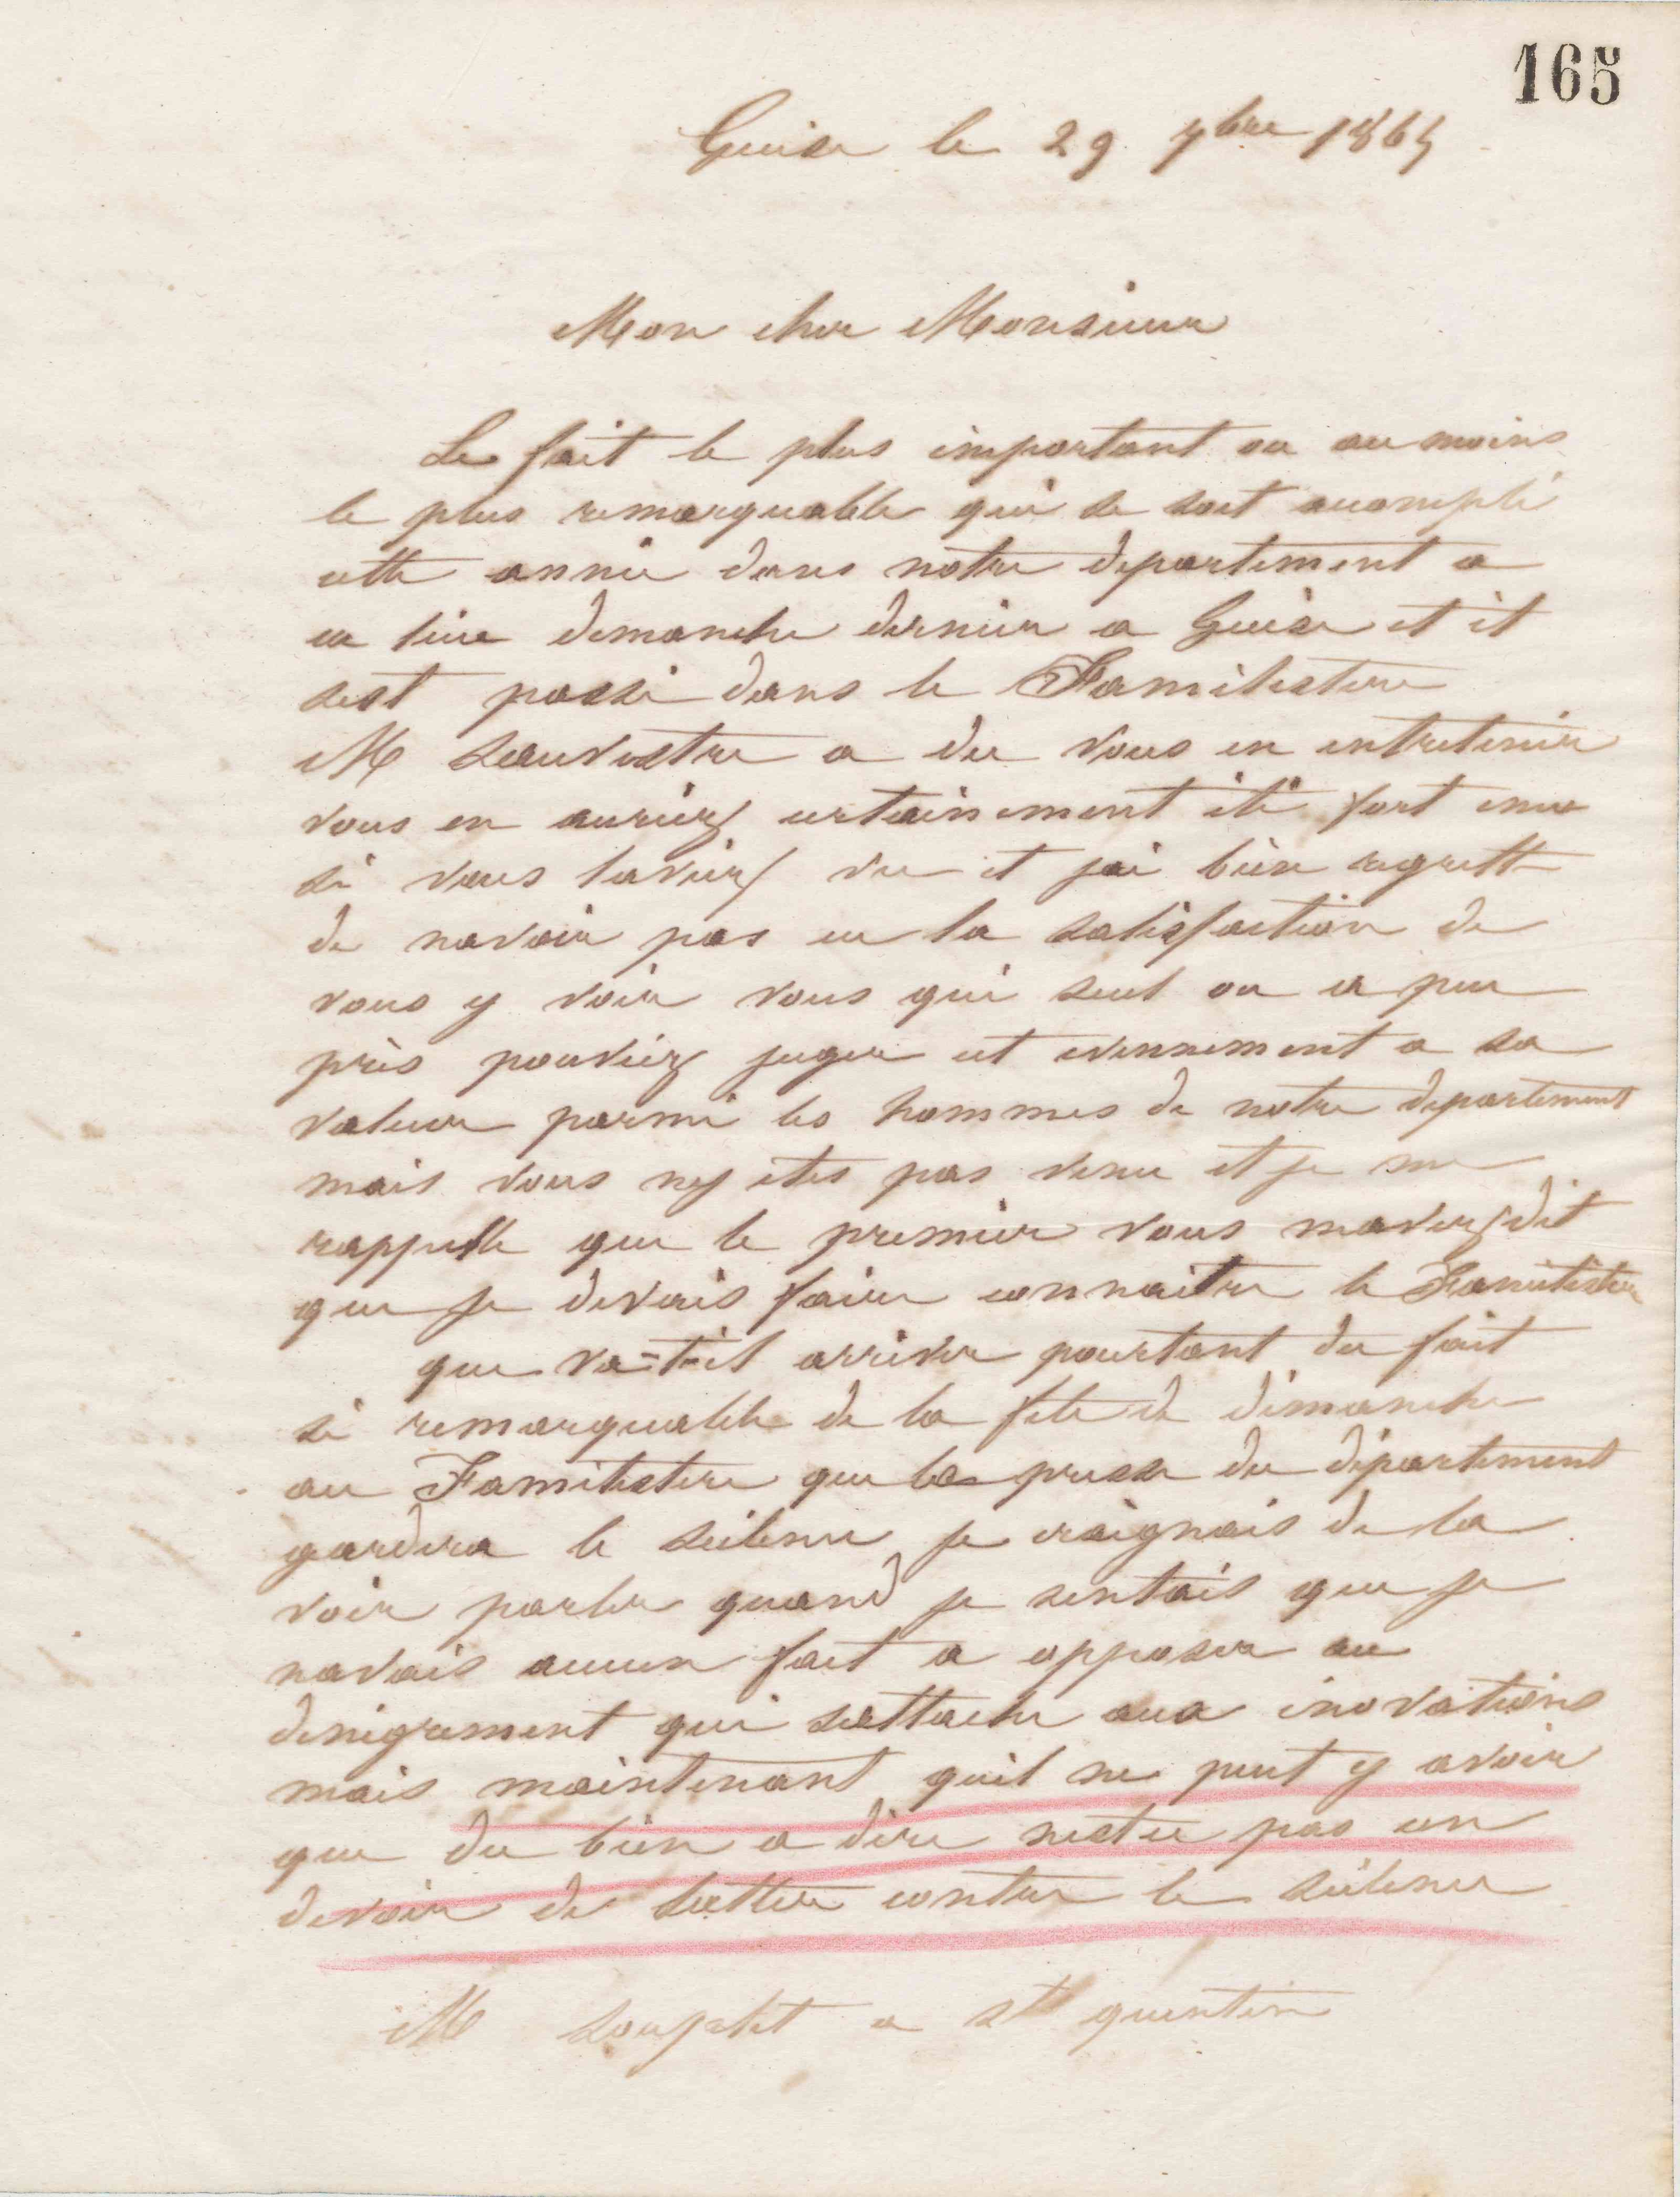 165
Guise le 29 7bre 1865
Mon cher Monsieur
Le fait le plus important ou au moins
le plus remarquable qui se soit accompli
cette année dans notre departement a
eu lieu dimanche dernier a Guise et il
sest passé dans le Familistere
M Sauvestre a du vous en entretenir
vous en auriez certainement été fort emu
si vous laviez vu et jai bien regretté
de navoir pas eu la satisfaction de
vous y voir vous qui seul ou a peu
près pouviez juger cet evennement a sa
valeur parmi les hommes de notre departement
mais vous ny etes pas venu et je me
rappelle que le premier vous maviez dit
que je devais faire connaitre le Familistere
que va-t-il arriver pourtant du fait
si remarquable de la fete de dimanche
au Familistere que la presse du département
gardera le scilence je craignais de la
voir parler quand je sentais que je
navais aucun fait a opposer au
denigrement qui sattache aux inovations
mais maintenant quil ne peut y avoir
que du bien a dire nestce pas un
devoir de lutter contre le scilence
M Souplet a St quentin